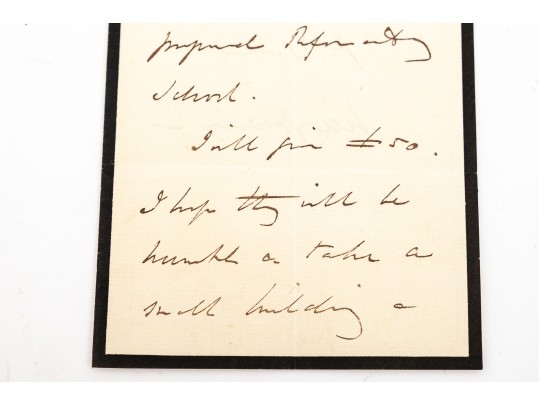 proposed Reformatory
School.
I will give £50.
I hope they will be
humble & take a
small building &